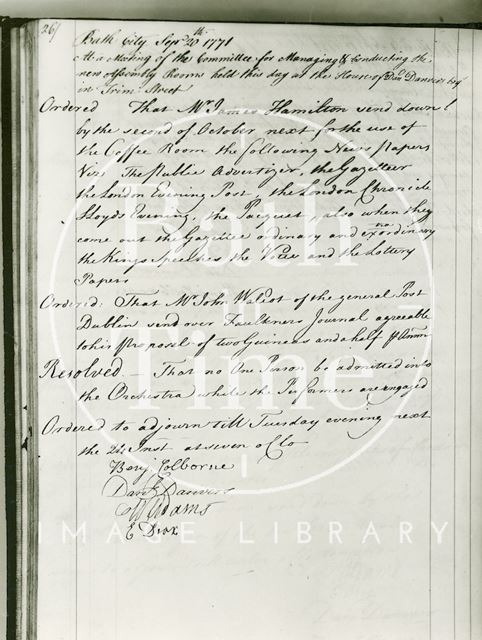 26/
Bath City Sepr. 20th 1771
At a Meeting of the Committee for Managing & Conducting the
new Assembly Rooms held this day at the House of Danl. Danvers Esqr
in Trim Street
Ordered That Mr James Hamilton send down
by the second of October next for the use of
the Coffee Room the following News Papers
Vizt The Public Advertizer, the Gazetteer
the London Evening Post, the London Chronicle
Lloyds Evening, the Pacquet, also when they
come out the Gazettee ordinary and exraordinary
the Kings Speeches the Votes and the Lottery
Papers
Ordered: That Mr John Walcot of the general Post
Dublin send over Faulkners Journal agreeable
to his Proposal of two Guineas and a half Annm
Resolved - That no One Person be admitted into
the Orchestra while the Performers are engaged
Ordered to adjourn till Tuesday evening next
the 24 Inst. at seven o Clo
Benj Colborne
Danl. Danvers
W Adams
E Drax
Bath in Time
IMAGE LIBRARY